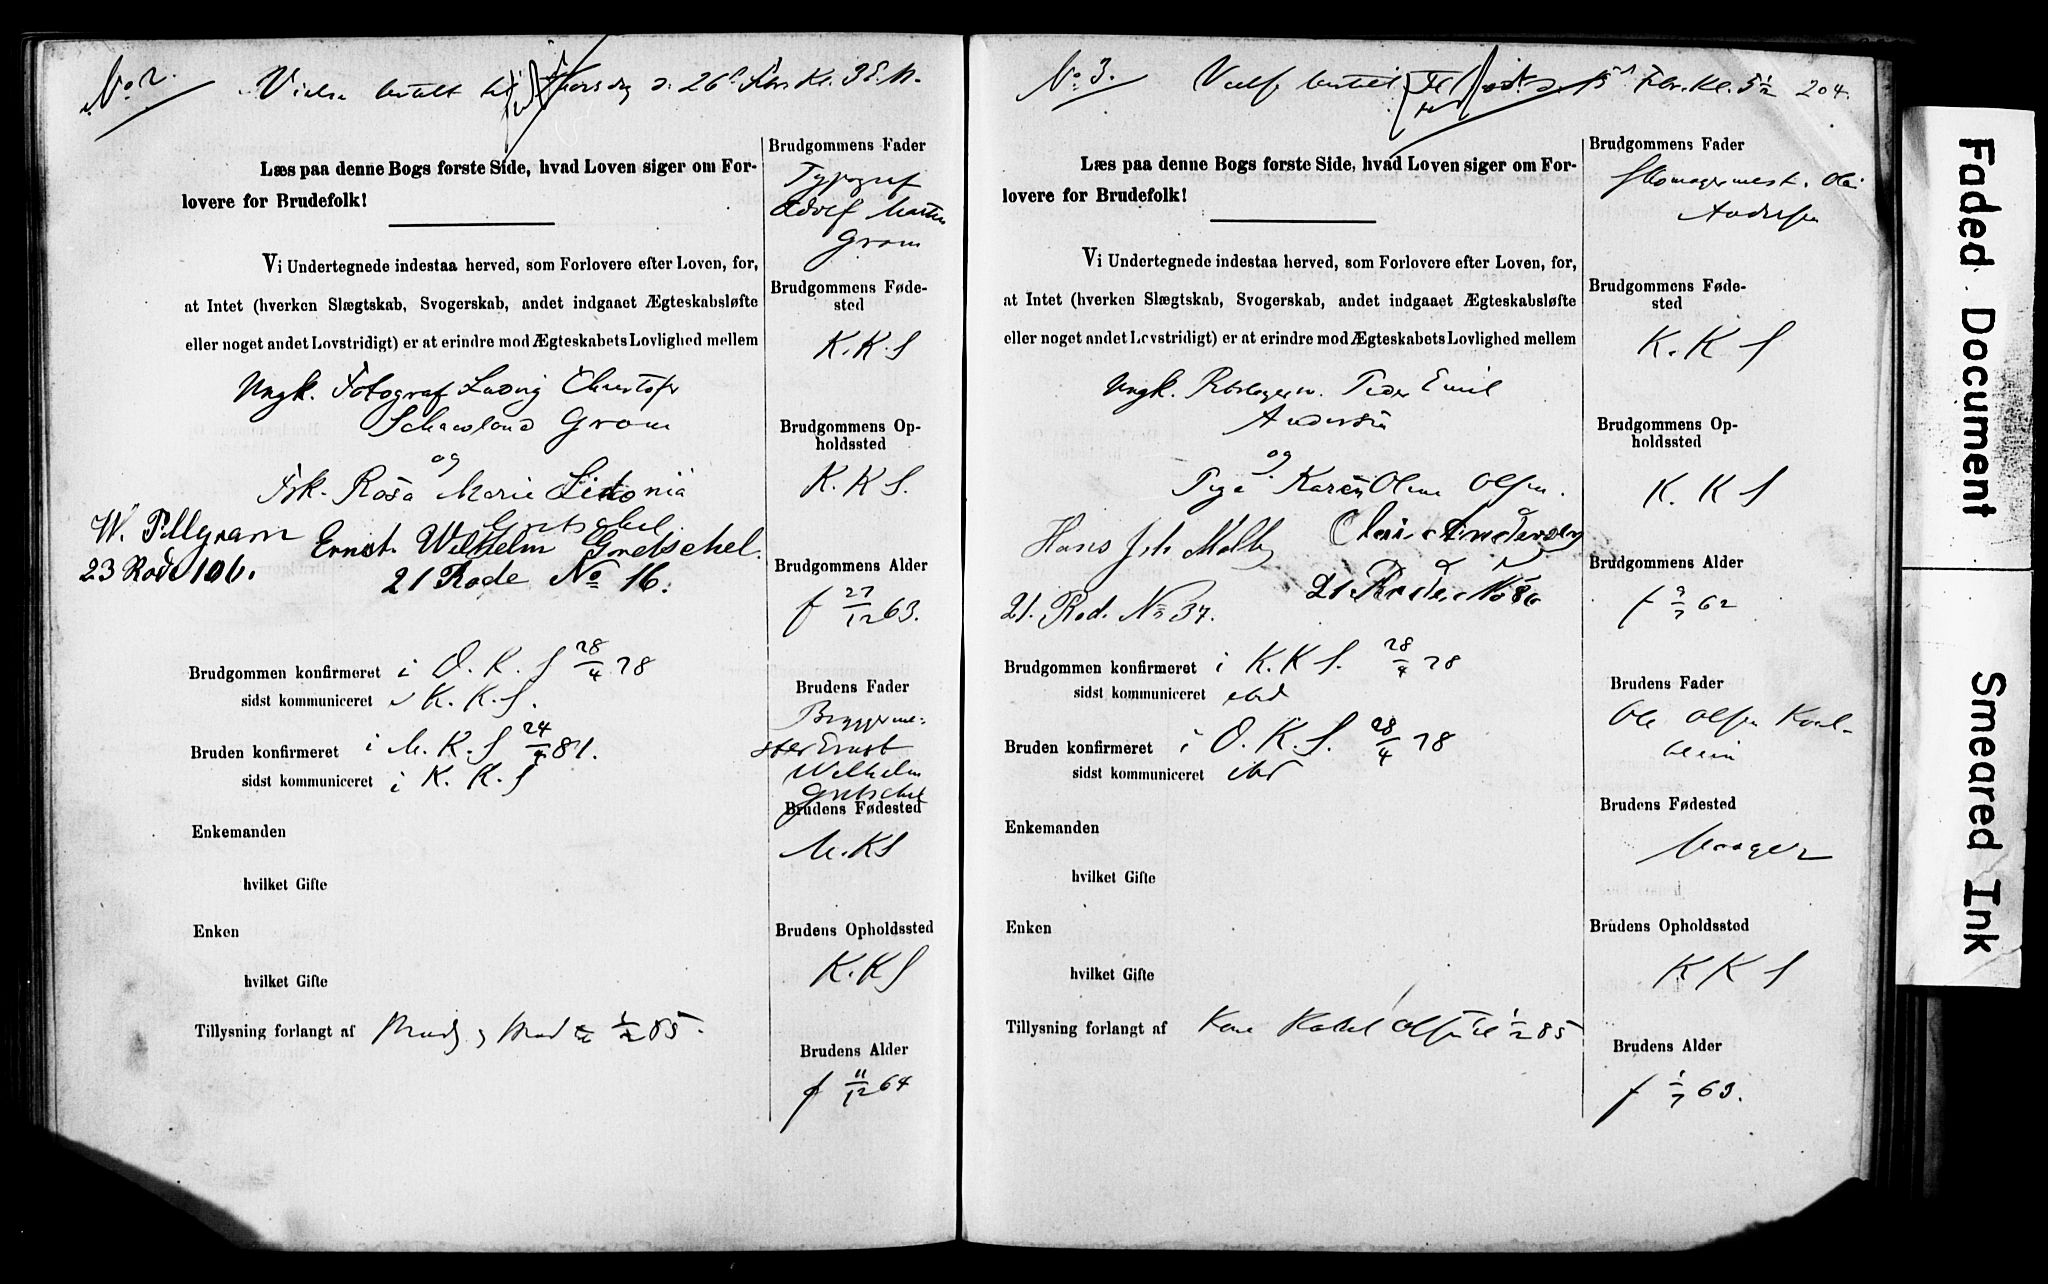 No 2. Vielse bestilt til Torsdag d. 26 Fbr. Kl. 3 E. M.
Læs paa denne Bogs første Side, hvad Loven siger om For-
lovere for Brudefolk!
Vi Undertegnede indestaa herved, som Forlovere efter Loven, for,
at Intet (hverken Slægtskab, Svogerskab, andet indgaaet Ægteskabsløfte
eller noget andet Lovstridigt) er at erindre mod Ægteskabets Lovlighed mellem
Ungk. Fotograf Ludvig Christofer
Gram
og
Frk. Rosa Marie Sidonia
Gretschel
W. Pillgram
23 Rode 106.
Ernst Wilhelm Gretschel.
21 Rode No 16.
Brudgommen konfirmeret i O. K. S 28/4 78
sidst kommuniceret i K. K. S.
Bruden konfirmeret i M. K. S 24/4 81.
sidst kommuniceret i K. K. S
Enkemanden
hvilket Gifte
Enken
hvilket Gifte
Tillysning forlangt af 1/2 85.
Brudgommens Fader
Typograf
Adolf Martin
Gram
Brudgommens Føde-
sted
K. K. S
Brudgommens Op-
holdssted
K. K S.
Brudgommens Alder
f 27/12 63.
Brudens Fader
Bryggerme-
ster Ernst
Wilhelm
Gretschel
Brudens Fødested
M. K S
Brudens Opholdssted
K. K S
Brudens Alder
f 11/12 64
No 3. bestilt til Fbr. Kl. 5 1/2 204.
Læs paa denne Bogs første Side, hvad Loven siger om For-
lovere for Brudefolk!
Vi Undertegnede indestaa herved, som Forlovere efter Loven, for,
at Intet (hverken Slægtskab, Svogerskab, andet indgaaet Ægteskabsløfte
eller noget andet Lovstridigt) er at erindre mod Ægteskabets Lovlighed mellem
Ungk. Peder Emil
Andersen
og
Pige Karen Oline Olsen.
Hans Joh Malby
21. Rod. No 37.
Olai Andersen
21 Rode No 86
Brudgommen konfirmeret i K. K S. 28/4 78
sidst kommuniceret ibid
Bruden konfirmeret i O. K. S. 28/4 78
sidst kommuniceret ibid
Enkemanden
hvilket Gifte
Enken
hvilket Gifte
Tillysning forlangt af Olsen til 1/2 85
Brudgommens Fader
Skomagermest. Olai
Andersen
Brudgommens Føde-
sted
K. K S
Brudgommens Op-
holdssted
K. K S
Brudgommens Alder
f 9/7 62
Brudens Fader
Ole Olsen
Brudens Fødested
Moager
Brudens Opholdssted
K K S
Brudens Alder
f 1/7 63.
Faded Document
Smeared Ink